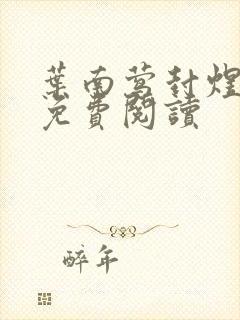 葉南莺封煌
免費閱讀
醉年